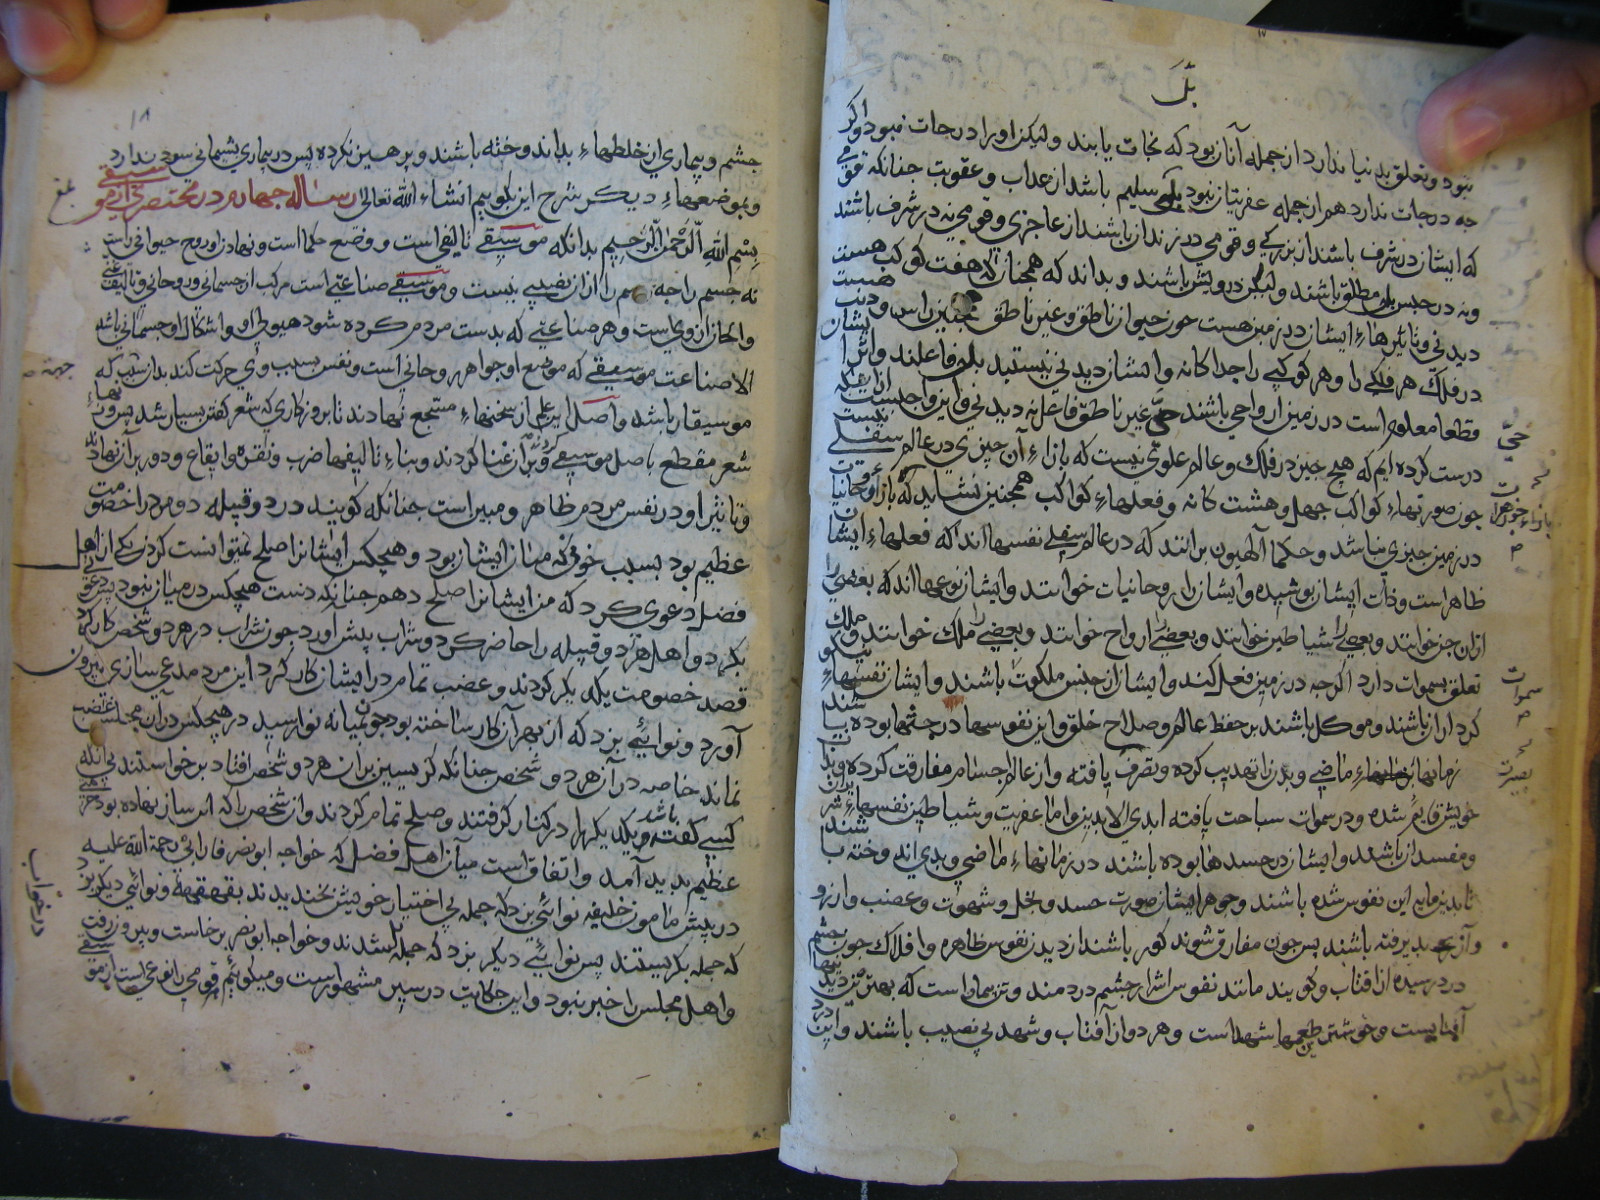 نبود و تعلق بدنیا ندارد از جمله آنان بود که نجات یابند ولیکن او را درجات نبود و اگر
جه درجات ندارد هم از جمله عفریتان نبود بلکه سلیم باشد از عذاب و عقوبت جنانکه قومی
که ایشان در شرف باشند از بزرکی و قومی در زندان باشند از عاجزی و قومی نه در شرف باشند
ونه در حبس بل مطلق باشند ولیکن درویش باشند و بداند که همجنانکه هفت کوکب هست
دیدنی و تاثیرهاء ایشان در زمین هست جون حیوان ناطق و غیر ناطق همجنین راس و ذنب هست
در فلک هر فلکی را و هر کوکبی را جداکانه وایشان دیدنی نیستند بلی فاعلند واثر ایشان
قطعا معلوم است در زمین ارواحی باشند حی غیر ناطق فاعل نه دیدنی و این واجبست از آنکه
درست کرده ایم که هیج جیز در فلک و عالم علوی نیست که بازاء آن جیزی در عالم سفلی نیست
جون صورتهاء کواکب جهل و هشت کانه و فعلهاء کواکب همجنین نشاید که بازاء روحانیات
در زمین جیزی نباشد و حکما آلهیون برانند که در عالم سفلی نفسها اند که فعلهاء ایشان
ظاهر است و ذات ایشان پوشیده و ایشان را روحانیات خوانند وایشان نوعها اند که بعضی را
ازان جن خوانند و بعضی را شیاطین خوانند و بعضی را ارواح خوانند و بعضی را ملک خوانند و ملک
تعلق بسموات دارد اکرجه در زمین فعل کند وایشان از جنس ملکوت باشند وایشان نفسهاء نیکو
کرداران باشند و موکل باشند بر حفظ عالم و صلاح خلق و این نفوسها در جثتها بوده باشند
زمانهاء ماضی و بدن را تهذیب کرده و تصرف یافته و از عالم اجسام مفارقت کرده و بذات
خویش قایم شده و در سموات سباحت یافته ابدی الابدین واما عفریت و شیاطین نفسهاء شریران
و مفسدان باشند وایشان در جسدها بوده باشند در زمانهاء ماضی و بدی اندوخته باشند
تا بدین مایه این نفوس شده باشند و جوهر ایشان صورت حسد و بخل و شهوت و غضب و آرزو
و آز پذیرفته باشند پس جون مفارق شوند کور باشند از دیدن نفوس ظاهره و افلاک جون جشم
درد رسیده از آفتاب و کویند مانند نفوس اشرار جشم دردمند و تن بیمار است که بهترین دیدنیها
آفتابست و خوشترین طعمها شهد است و هر دو از آفتاب و شهد بی نصیب باشند و این درد
حی
سموات
۱۸
جشم و بیماری از خلطهاء بد اندوخته باشند و پرهیز نکرده پس در بیماری پشیمانی سود ندارد
و بموضعهاء دیکر شرح این بکوییم انشاء الله تعالی رساله جهارم در مختصری از موسیقی
بسم الله الرحمن الرحیم بدانکه موسیقی تالیفی است و وضع حکما است و نهاد زان روح حیوانی است
نه جسم را جه جسم را ازان نصیبی نیست و موسیقی صناعتی است مرکب از جسمانی و روحانی و تالیف
والحان ازوی است و هر صناعتی که بدست مردم کرده شود هیولی او و اشکال او جسمانی باشد
الا صناعت موسیقی که موضع او جواهر روحانی است و نفس بسبب وی حرکت کند بدان سبب که
موسیقار باشد و اصل این علم از سخنهاء مسجع نهادند تا بروزکاری که شعر کفتن بسیار شد پس وزنهاء
شعر مقطع باصل موسیقی وبران غنا کردند و بناء تالیفها ضرب و نقره و ایقاع و دور بران نهادند
و تاثیر او در نفس مردم ظاهر و مبین است جنانکه کویند در دو قبیله دو مرد را خصومت
عظیم بود بسبب خونی که میان ایشان بود و هیجکس ایشانرا صلح نمیتوانست کردن یکی از اهل
فضل دعوی کرد که من ایشانرا صلح دهم جنانکه دست هیجکس در میان نبود پس دعوی
بکرد و اهل هر دو قبیله را حاضر کرد و شراب پیش آورد جون شراب در هر دو شخص کار کرد
قصد خصومت یکدیکر کردند و غضب تمام در ایشان کار کرد این مرد مدعی سازی بیرون
آورد و نوایی بزد که از بهر آن کار ساخته بود جون بمیانه نوا رسید در هیجکس دران مجلس غضب
نماند خاصه در آن هر دو شخص جنانکه کریستن بران هر دو شخص افتاد برخواستند بی آنکه
کسی کفته باشد و یکدیکر را در کنار کرفتند و صلح تمام کردند و ان شخص را که این ساز نهاده بود
عظیم پدید آمد و اتفاق است میان اهل فضل که خواجه ابونصر فارابی رحمة الله علیه
در پیش مامون خلیفه نوایی بزد که جمله بی اختیار خویش بخندیدند بقهقهه و نوایی دیکر بزد
که جمله بکریستند پس نوایی دیکر بزد که جمله و خواجه ابونصر برخاست و بیرون رفت
و اهل مجلس را خبر نبود و این حکایت در سیر مشهور است و میکوییم قومی را نوعی است از موسیقی
در خواب